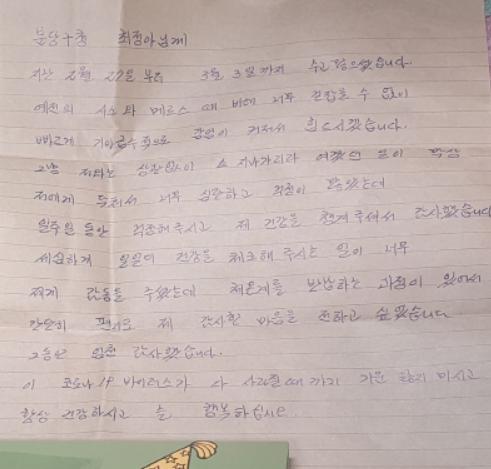 분당구청 최정아님께
지난 2월 27일 부터 3월 3일까지 수고 많으셨습니다.
예전의 사스와 메르스 때 비해 너무 걷잡을 수 없이
빠르게 기하급수적으로 감염이 커져서 힘드시겠습니다.
그냥 저와는 상관없이 스쳐지나가리라 여겼던 일이 막상
저에게 닥쳐서 너무 심란하고 걱정이 많았는데
일주일 동안 걱정해주시고 제 건강을 챙겨주셔서 감사했습니다
세심하게 일일이 건강을 체크해 주시는 일이 너무
제게 감동을 주셨는데 체온계를 반납하는 과정이 있어서
간단히 편지로 제 감사한 마음을 전하고 싶었습니다
그동안 감사했습니다.
이 코로나19 바이러스가 다 사라질때까지 기운 잃지 마시고
항상 건강하시고 늘 행복하십시오.